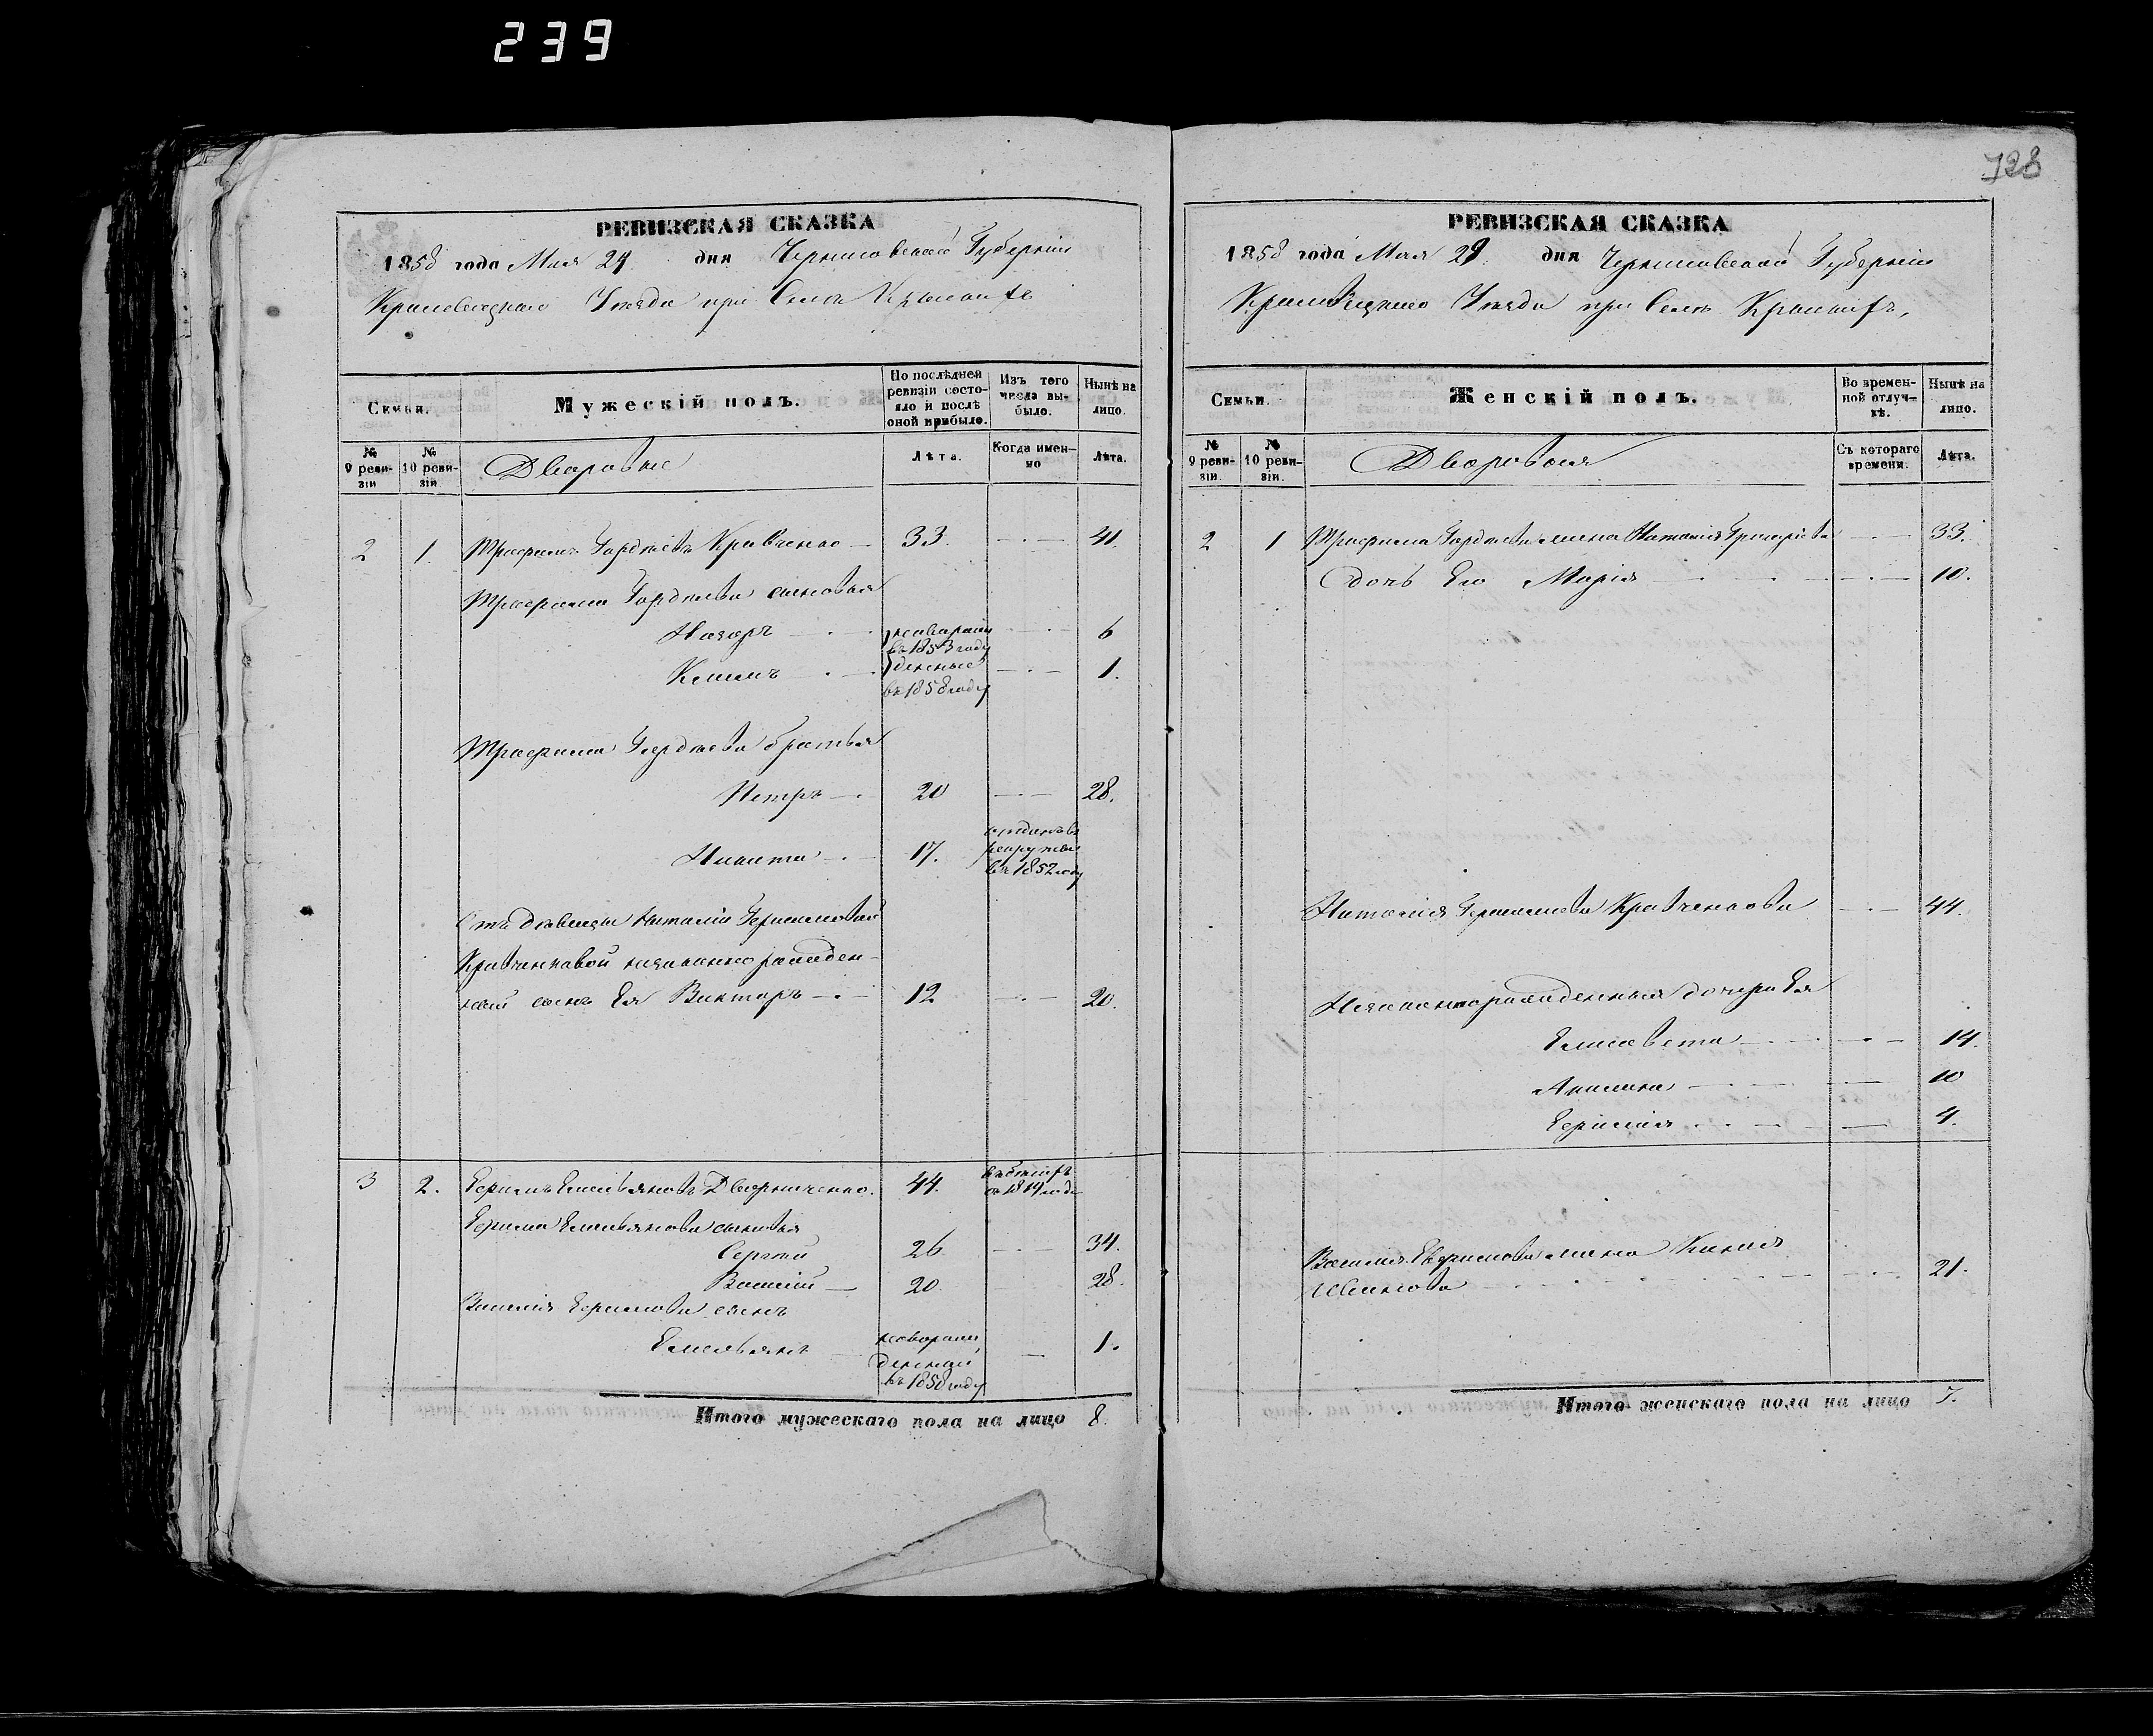 239
728
РЕВИЗСКАЯ СКАЗКА
1858 года Мая 24 дня Черниговской Губернiи
Кролевецкаго Уѣзда при Селѣ
Семьи.
Мужескiй полъ.
По послѣдней ревизiи состояло и послѣ оной прибыло.
Изъ того числа выбыло.
Нынѣ на лицо.
№ 9 ревизiи
№ 10 ревизiи
Дворовые
Лѣта.
Когда именно
Лѣта.
2 1. Трофимъ Гордѣевъ Кравченко 33. 41.
Трофима Гордѣева сыновья
Назаръ новорож въ 1853 году 6
Климъ денные въ 1858 году 1.
Трофима Гордѣева братья
Петръ 20 28.
Никита 17. отданъ въ рекруты въ 1852 году
Отъ дѣвицы Наталiи Герасимовой
Кравченковой незаконно рожден-
ный сынъ Ея Викторъ 12 20.
3 2. Ефимъ Емельяновъ Дворниченко. 44.
Ефима Емельянова сыновья
Сергѣй 26 34.
Василiй 20. 28.
Василiя Ефимова сынъ
Емельянъ новорож денный въ 1858 году 1.
Итого мужескаго пола на лицо 8.
РЕВИЗСКАЯ СКАЗКА
1858 года Мая 29 дня Черниговской Губернiи
Кролевецкаго Уѣзда при Селѣ
Семьи.
Женскiй полъ.
Во временной отлучкѣ.
Нынѣ на лицо.
№ 9 ревизiи.
№ 10 ревизiи.
Дворовыя
Съ котораго времени.
Лѣта.
2 1 Трофима Гордѣева жена Наталiя Григорiева 33.
дочь Его Марiя 10.
Наталiя Герасимова Кравченкова 44.
Незаконнорожденныя дочери Ея
Елисавета 14.
Акилина 10
Ефимiя 4.
Василiя Ефимова жена
Иванова 21.
Итого женскаго пола на лицо 7.